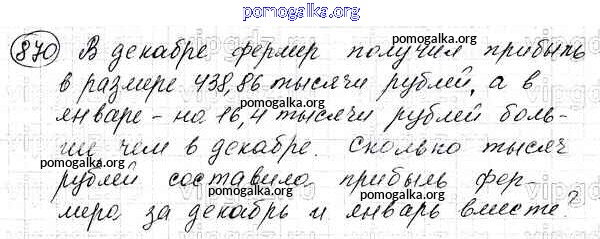 pomogalka.org
870 В декабре фермер получил прибыль
pomogalka.org
в размере 438,86 тысячи рублей, а в
pomogalka.org
январе - на 16,4 тысячи рублей боль-
ши чем в декабре. Сколько тысяч
pomogalka.org
рублей составила прибыль фер
pomogalka.org
мера за декабрь и январь вместе?
pomogalka.org